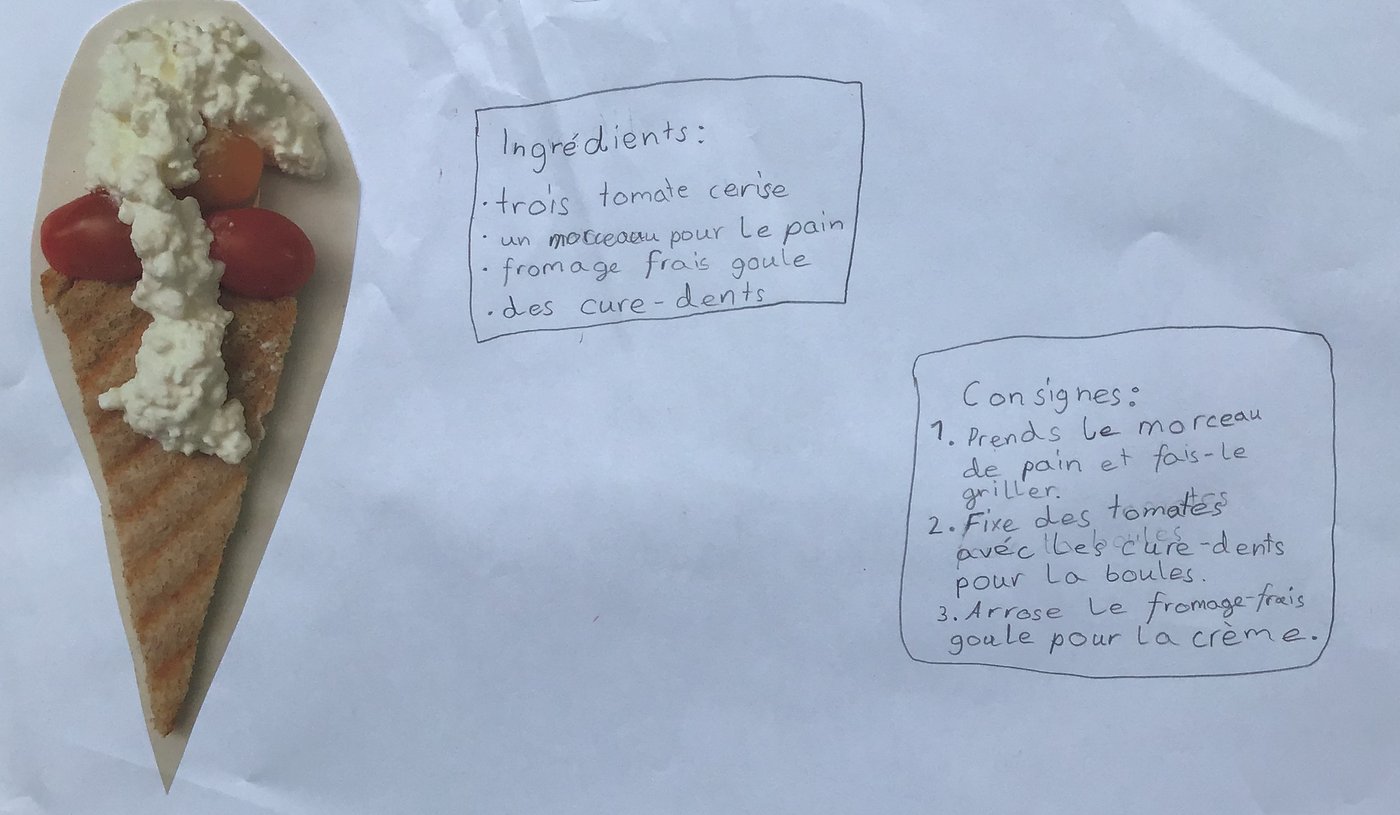 Ingrédients:
· trois tomate cerise
· un morceaau pour le pain
· fromage frais goule
· des cure-dents
Consignes:
1. Prends le morceau
de pain et fais-le
griller.
2. Fixe des tomates
avéc les cure-dents
pour la boules.
3. Arrose le fromage-frais
goule pour la crème.